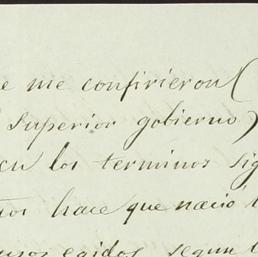 e me confirieron (
superior gobierno)
en los terminos sig
ños hace que nacio
egidos segun l